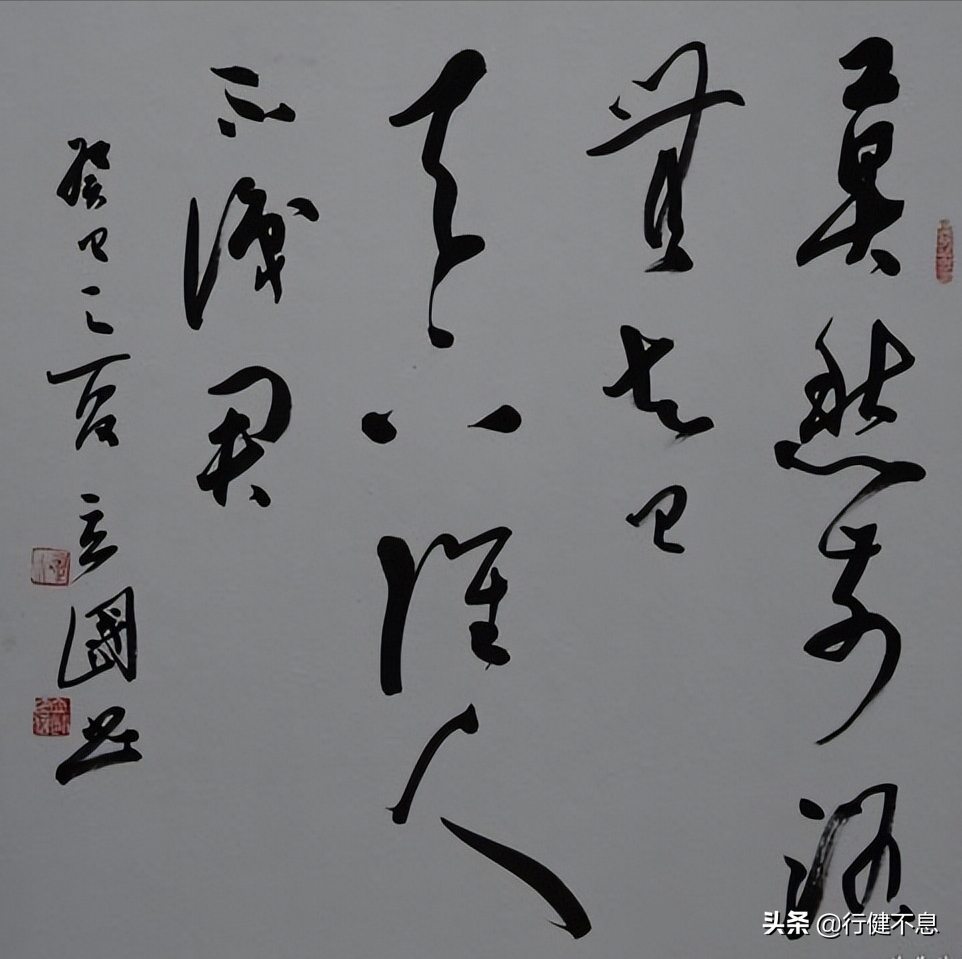 莫愁前路
無知己
天下誰人
不識君
癸巳之夏立國书
头条 @行健不息